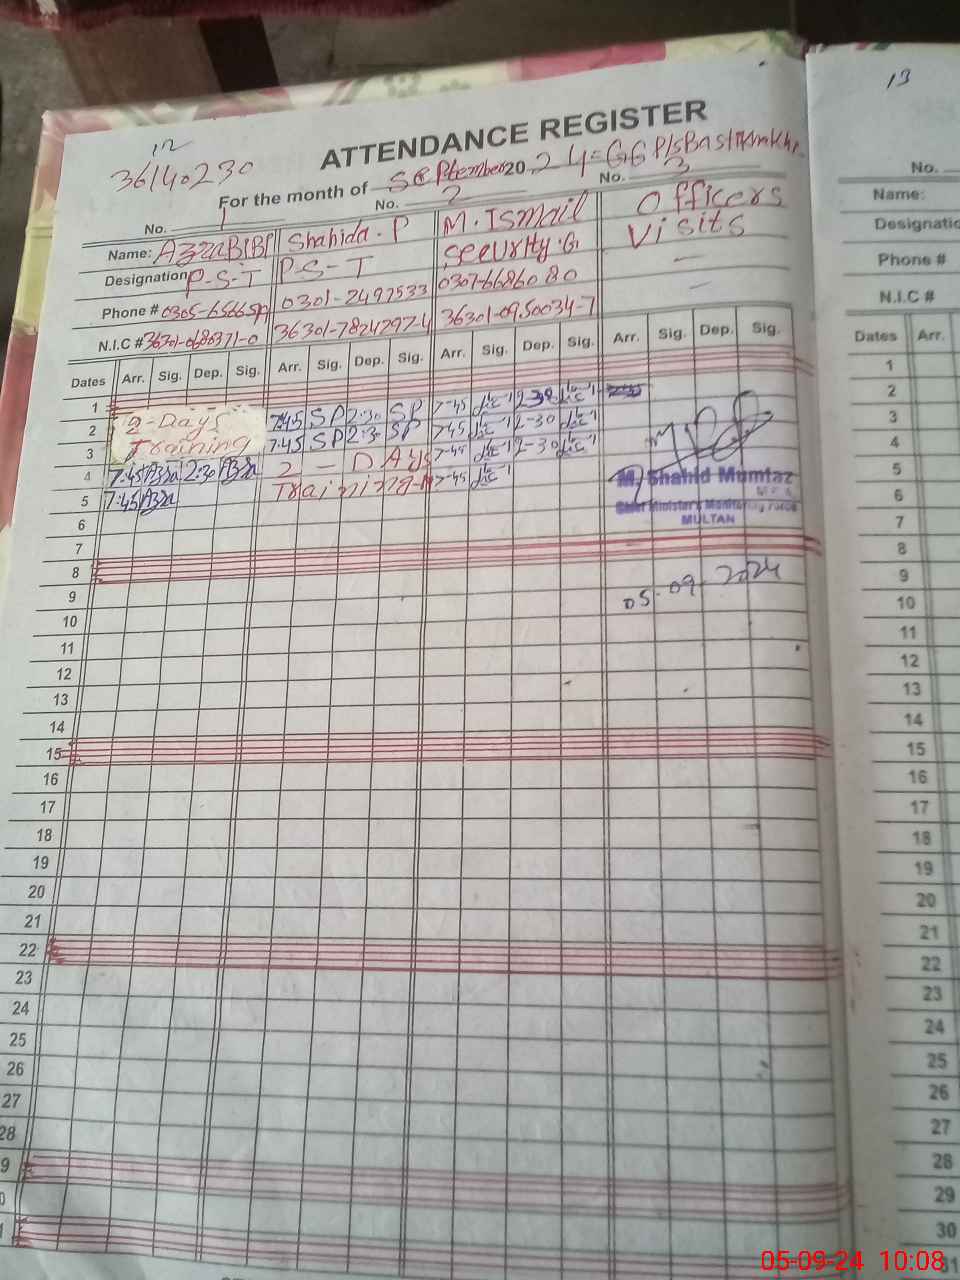 13
36140230
ATTENDANCE REGISTER
For the month of September 2024 = GG P/S Basti
No. 1 No. 2 No. 3
Name: Azra BiBi Shahida.P M. Ismail Officers
Designation P-S-T P-S-T Security.G visits
Phone # 0305-6566 0301-2497533 0307-6686080 —
N.I.C # 36301-0680371-0 36301-7824297-4 36301-0950034-7 —
Dates Arr. Sig. Dep. Sig. Arr. Sig. Dep. Sig. Arr. Sig. Dep. Sig. Arr. Sig. Dep. Sig.
1
2 2-Days 7:45 SP 2:30 SP 7-45 2-30
3 Training 7:45 SP 2:30 SP 7-45 2-30
4 7:45 Azra 2:30 Azra 2 - DAYS 7-45 2-30
5 7:45 Azra Training 7-45
M. Shahid Mumtaz
M.E.A
Chief Minister's Monitoring Force
MULTAN
6
7
8
05.09.2024
9
10
11
12
13
14
15
16
17
18
19
20
21
22
23
24
25
26
27
28
9
0
1
No.
Name:
Designatio
Phone #
N.I.C #
Dates Arr.
1
2
3
4
5
6
7
8
9
10
11
12
13
14
15
16
17
18
19
20
21
22
23
24
25
26
27
28
29
30
31
05-09-24 10:08